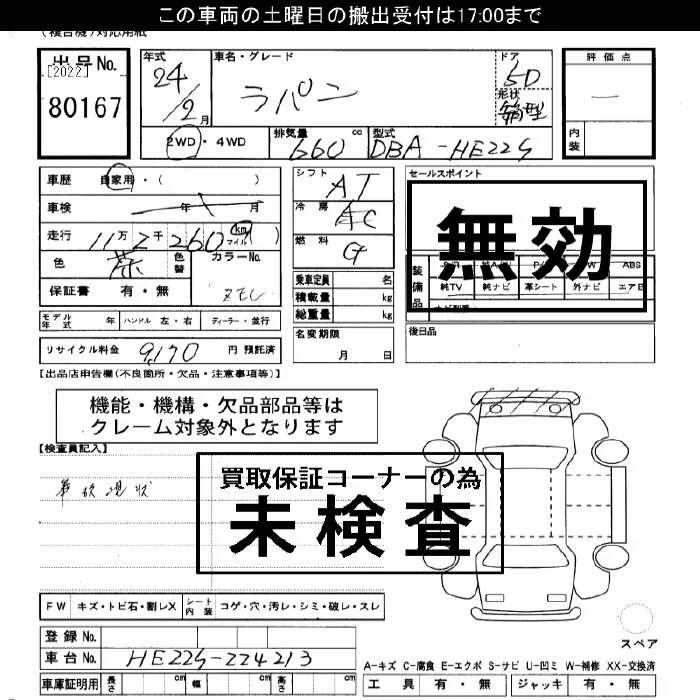 この車両の土曜日の搬出受付は17:00まで
(複合機)対応用紙
出品No.
[2022]
80167
年式
24/2月
車名・グレード
ラパン
ドア
5D
形状
箱型
評価点
内装
2WD・4WD
排気量 660 cc
型式 DBA-HE22S
車歴 自家用・( )
車検 年 月
走行 11万2千260 (km マイル)
色 茶
色替
カラーNo.
ZEU
保証書 有・無
シフト AT
冷房 AC
燃料 G
乗車定員 名
積載量 kg
総重量 kg
セールスポイント
無効
装備品
ABS
純TV 純ナビ 革シート 外ナビ エアB
モデル年式 年 ハンドル 左・右 ディーラー・並行
名変期限
月 日
後日品
リサイクル料金 9,170 円 預託済
【出品店申告欄(不良箇所・欠品・注意事項等)】
機能・機構・欠品部品等は
クレーム対象外となります
【検査員記入】
事故現状
買取保証コーナーの為
未検査
FW キズ・トビ石・割レX シート内装 コゲ・穴・汚レ・シミ・破レ・スレ
スペア
登録No.
車台No. HE22S-224213
A-キズ C-腐食 E-エクボ S-サビ U-凹ミ W-補修 XX-交換済
車庫証明用 長さ cm 幅 cm 高さ cm
工具 有・無 ジャッキ 有・無